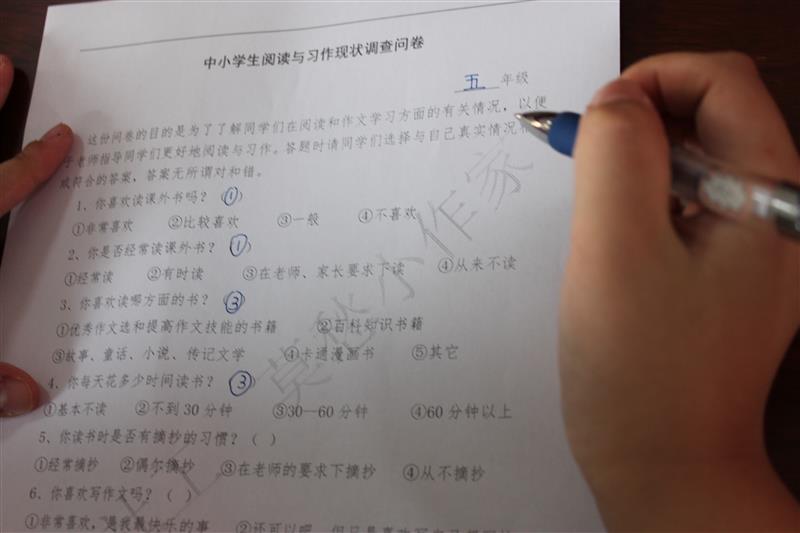 中小学生阅读与习作现状调查问卷
五 年级
这份问卷的目的是为了了解同学们在阅读和作文学习方面的有关情况，以便
于老师指导同学们更好地阅读与习作。答题时请同学们选择与自己真实情况
或符合的答案，答案无所谓对和错。
1、你喜欢读课外书吗？（①）
①非常喜欢 ②比较喜欢 ③一般 ④不喜欢
2、你是否经常读课外书？（①）
①经常读 ②有时读 ③在老师、家长要求下读 ④从来不读
3、你喜欢读哪方面的书？（③）
①优秀作文选和提高作文技能的书籍 ②百科知识书籍
③故事、童话、小说、传记文学 ④卡通漫画书 ⑤其它
4、你每天花多少时间读书？（③）
①基本不读 ②不到30分钟 ③30—60分钟 ④60分钟以上
5、你读书时是否有摘抄的习惯？（ ）
①经常摘抄 ②偶尔摘抄 ③在老师的要求下摘抄 ④从不摘抄
6、你喜欢写作文吗？（ ）
①非常喜欢，是我最快乐的事 ②还可以吧，但只是喜欢写
莫愁小作家